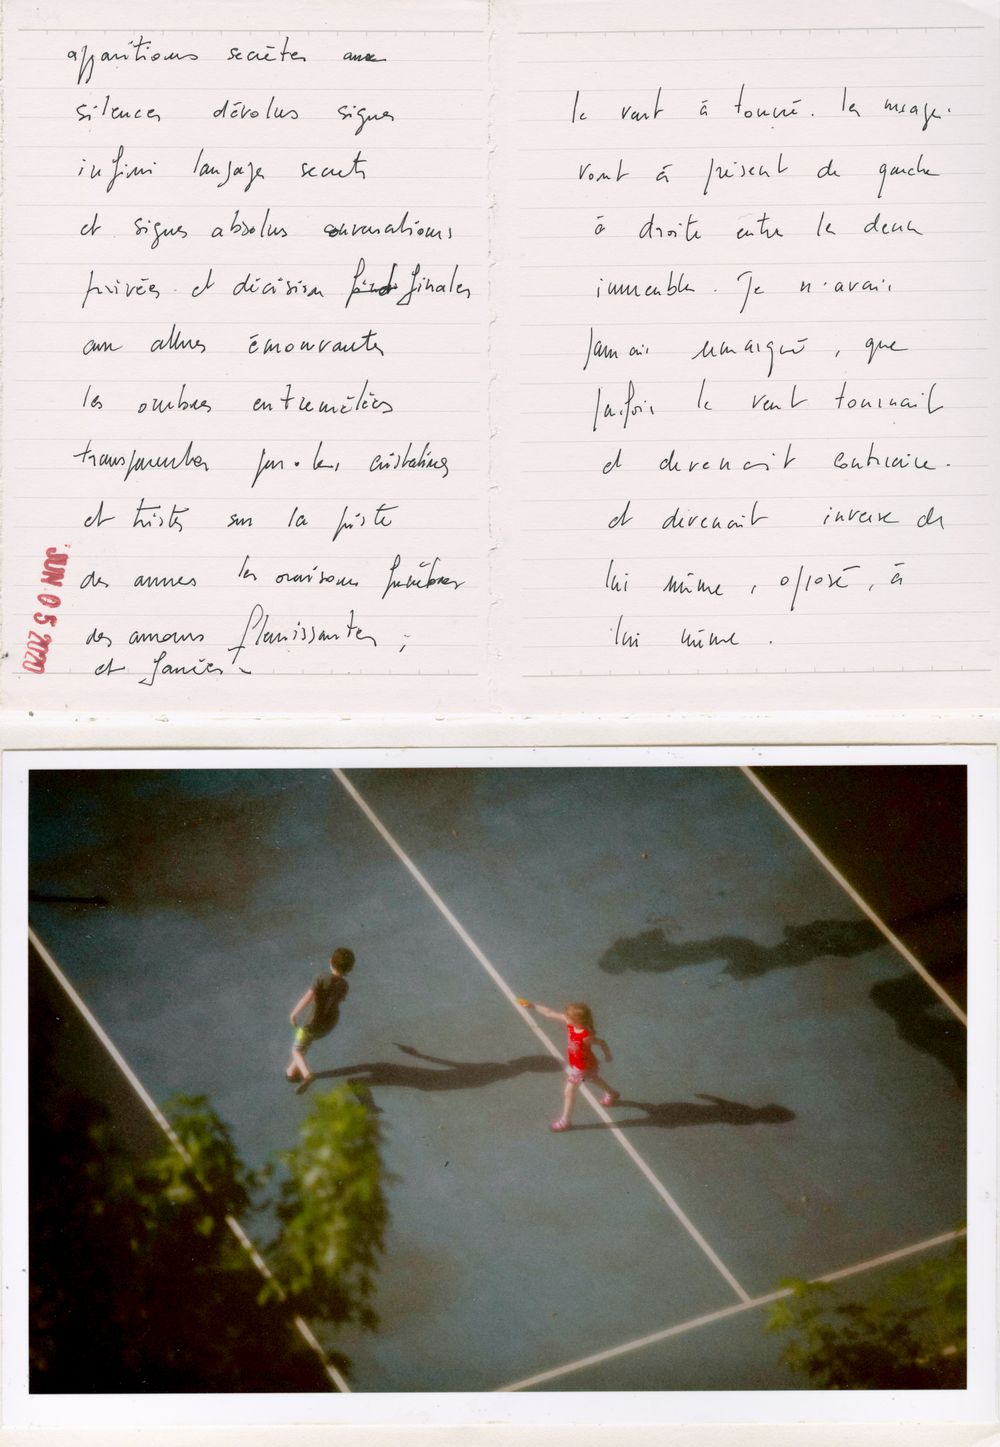 apparitions secrètes aux
silences dévolus signes
infini langages secrets
et signes absolus conversations
privées et décision finales
aux allures émouvantes
les ombres entremêlées
transparentes par les cristallines
et tristes sur la piste
des annees les oraisons funèbres
des amours flanissantes ;
et fanées
JUN 05 2020
le vent à tourné. les nuages
vont à présent de gauche
à droite entre les deux
immeubles. Je n'avais
jamais remarqué, que
parfois le vent tournait
et devenait contraire.
et devenait inverse de
lui même, opposé, à
lui même.